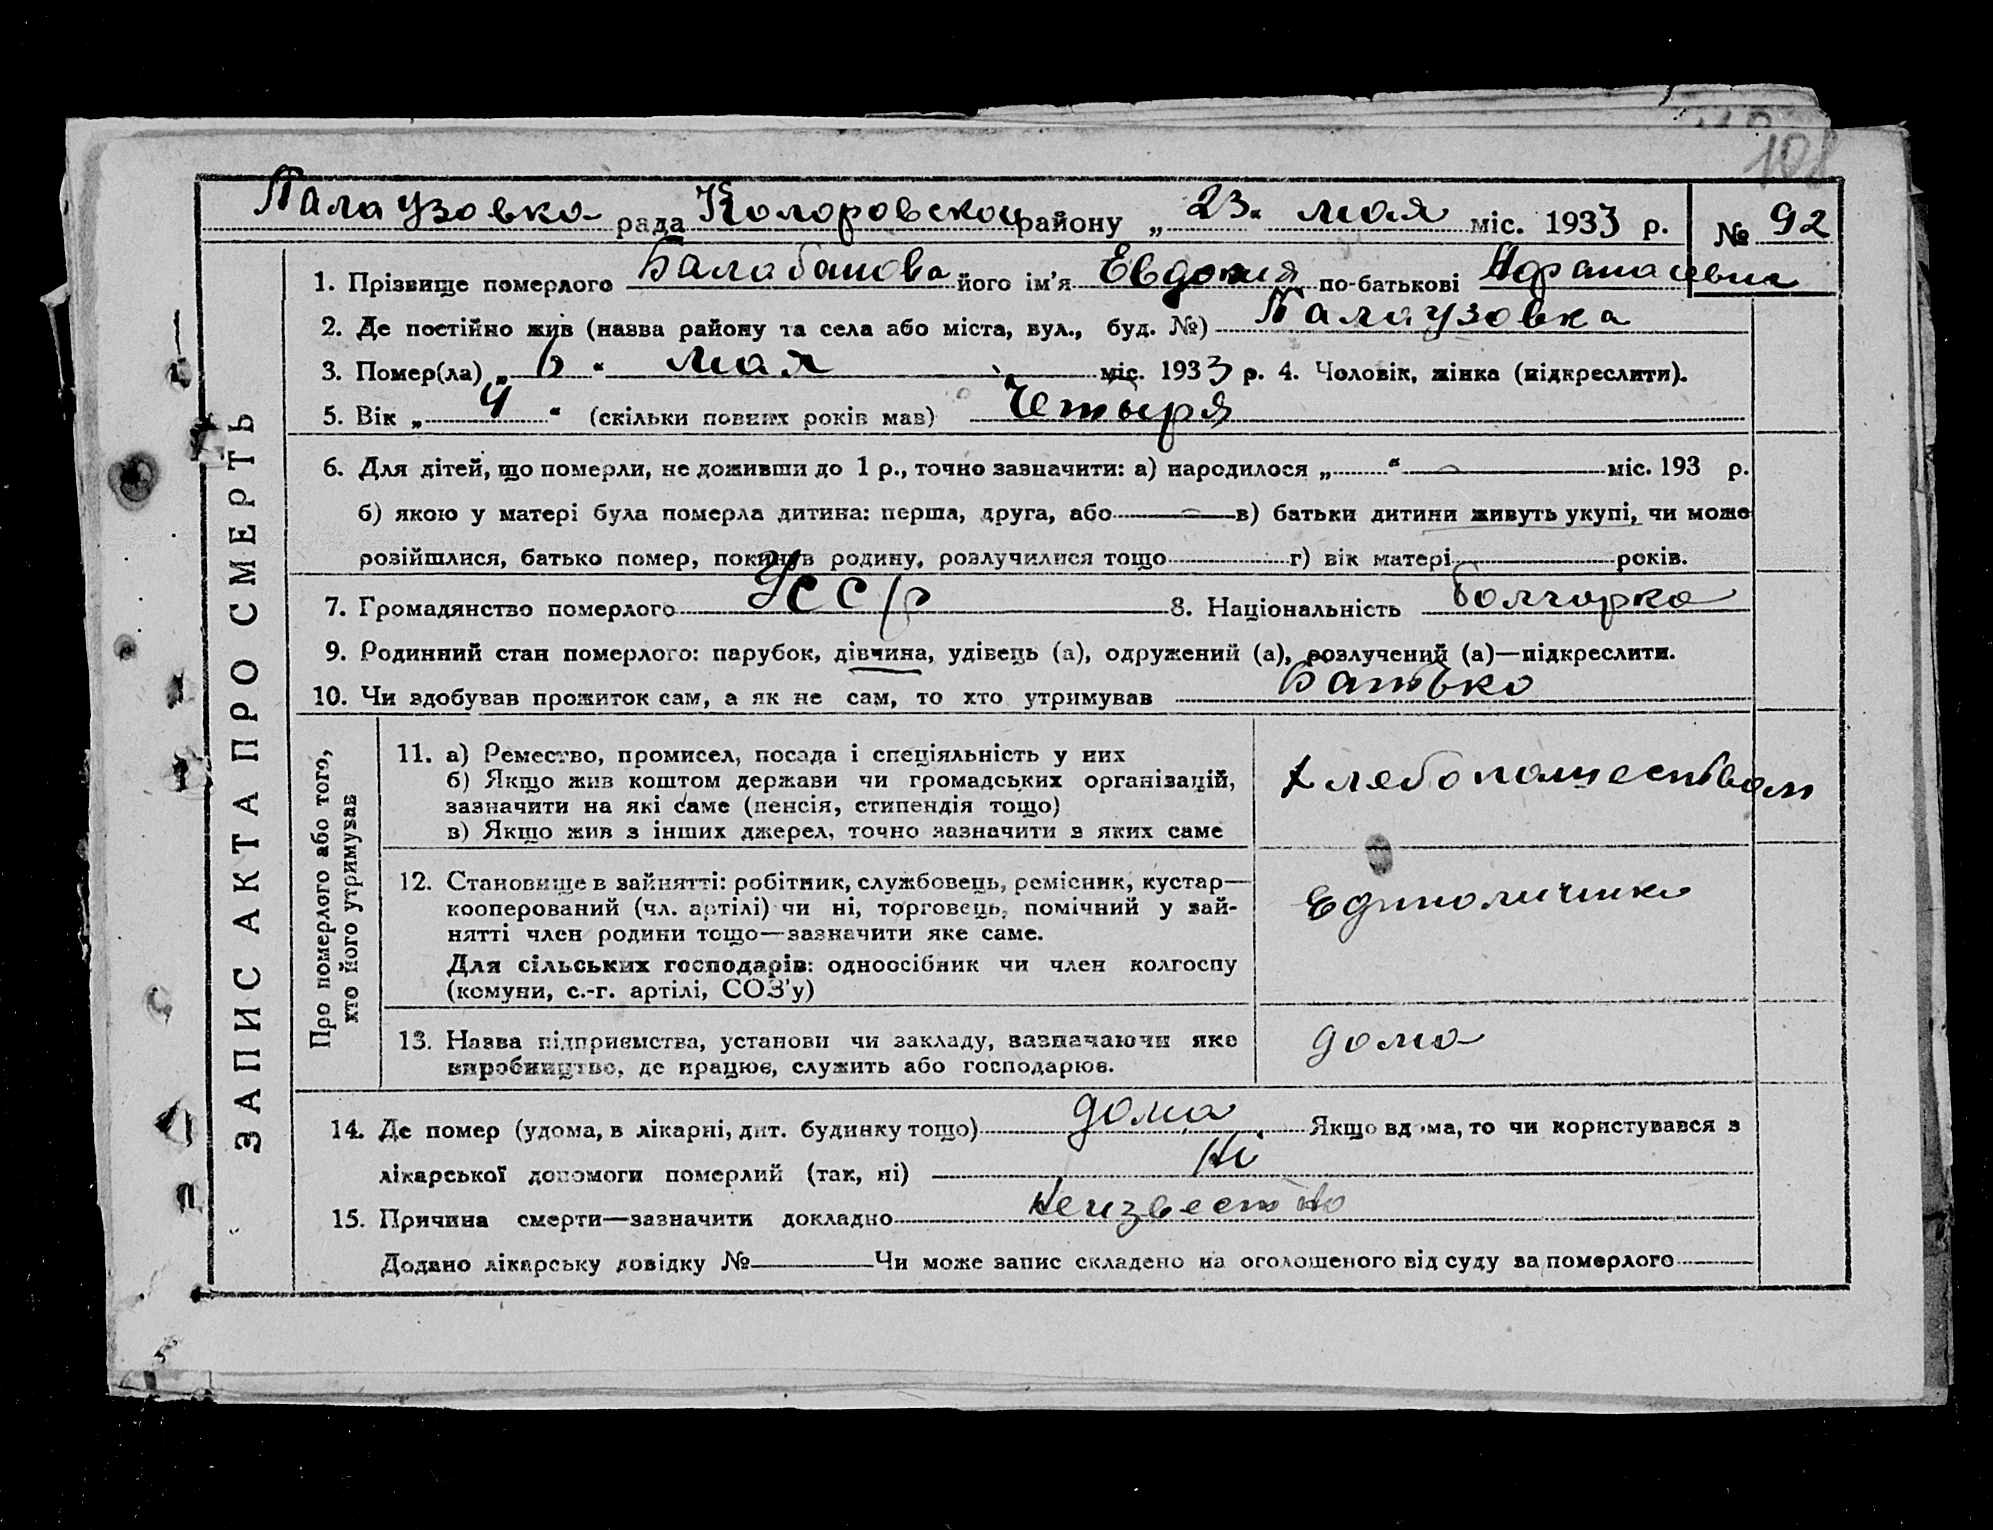 108
Палаузовка рада Коларовской району „ 23 “ мая міс. 1933 р. № 92
1. Прізвище померлого Балабанова його ім’я Евдокия по-батькові Афанасевна
2. Де постійно жив (назва району та села або міста, вул., буд. №) Палаузовка
3. Помер(ла) „ 6 “ мая міс. 1933 р. 4. Чоловік, жінка (підкреслити).
5. Вік „ 4 “ (скільки повних років мав) Четыря
6. Для дітей, що померли, не доживши до 1 р., точно зазначити: а) народилося „ “ — міс. 193 р.
б) якою у матері була померла дитина: перша, друга, або — в) батьки дитини живуть укупі, чи може
розійшлися, батько помер, покинув родину, розлучилися тощо г) вік матері років.
7. Громадянство померлого УССР 8. Національність болгарка
9. Родинний стан померлого: парубок, дівчина, удівець (а), одружений (а), розлучений (а)—підкреслити.
10. Чи здобував прожиток сам, а як не сам, то хто утримував Батько
11. а) Ремество, промисел, посада і спеціяльність у них
б) Якщо жив коштом держави чи громадських організацій,
зазначити на які саме (пенсія, стипендія тощо)
в) Якщо жив з інших джерел, точно зазначити з яких саме
хлебопашеством
12. Становище в зайнятті: робітник, службовець, ремісник, кустар—
кооперований (чл. артілі) чи ні, торговець, помічний у зай-
нятті член родини тощо—зазначити яке саме.
Для сільських господарів: одноосібник чи член колгоспу
(комуни, с.-г. артілі, СОЗ’у)
Единоличник
13. Назва підприємства, установи чи закладу, зазначаючи яке
виробництво, де працює, служить або господарює.
дома
14. Де помер (удома, в лікарні, дит. будинку тощо) дома Якщо вдома, то чи користувався з
лікарської допомоги померлий (так, ні) Ні
15. Причина смерти—зазначити докладно Неизвестно
Додано лікарську довідку № — Чи може запис складено на оголошеного від суду за померлого
ЗАПИС АКТА ПРО СМЕРТЬ
Про померлого або того,
хто його утримував